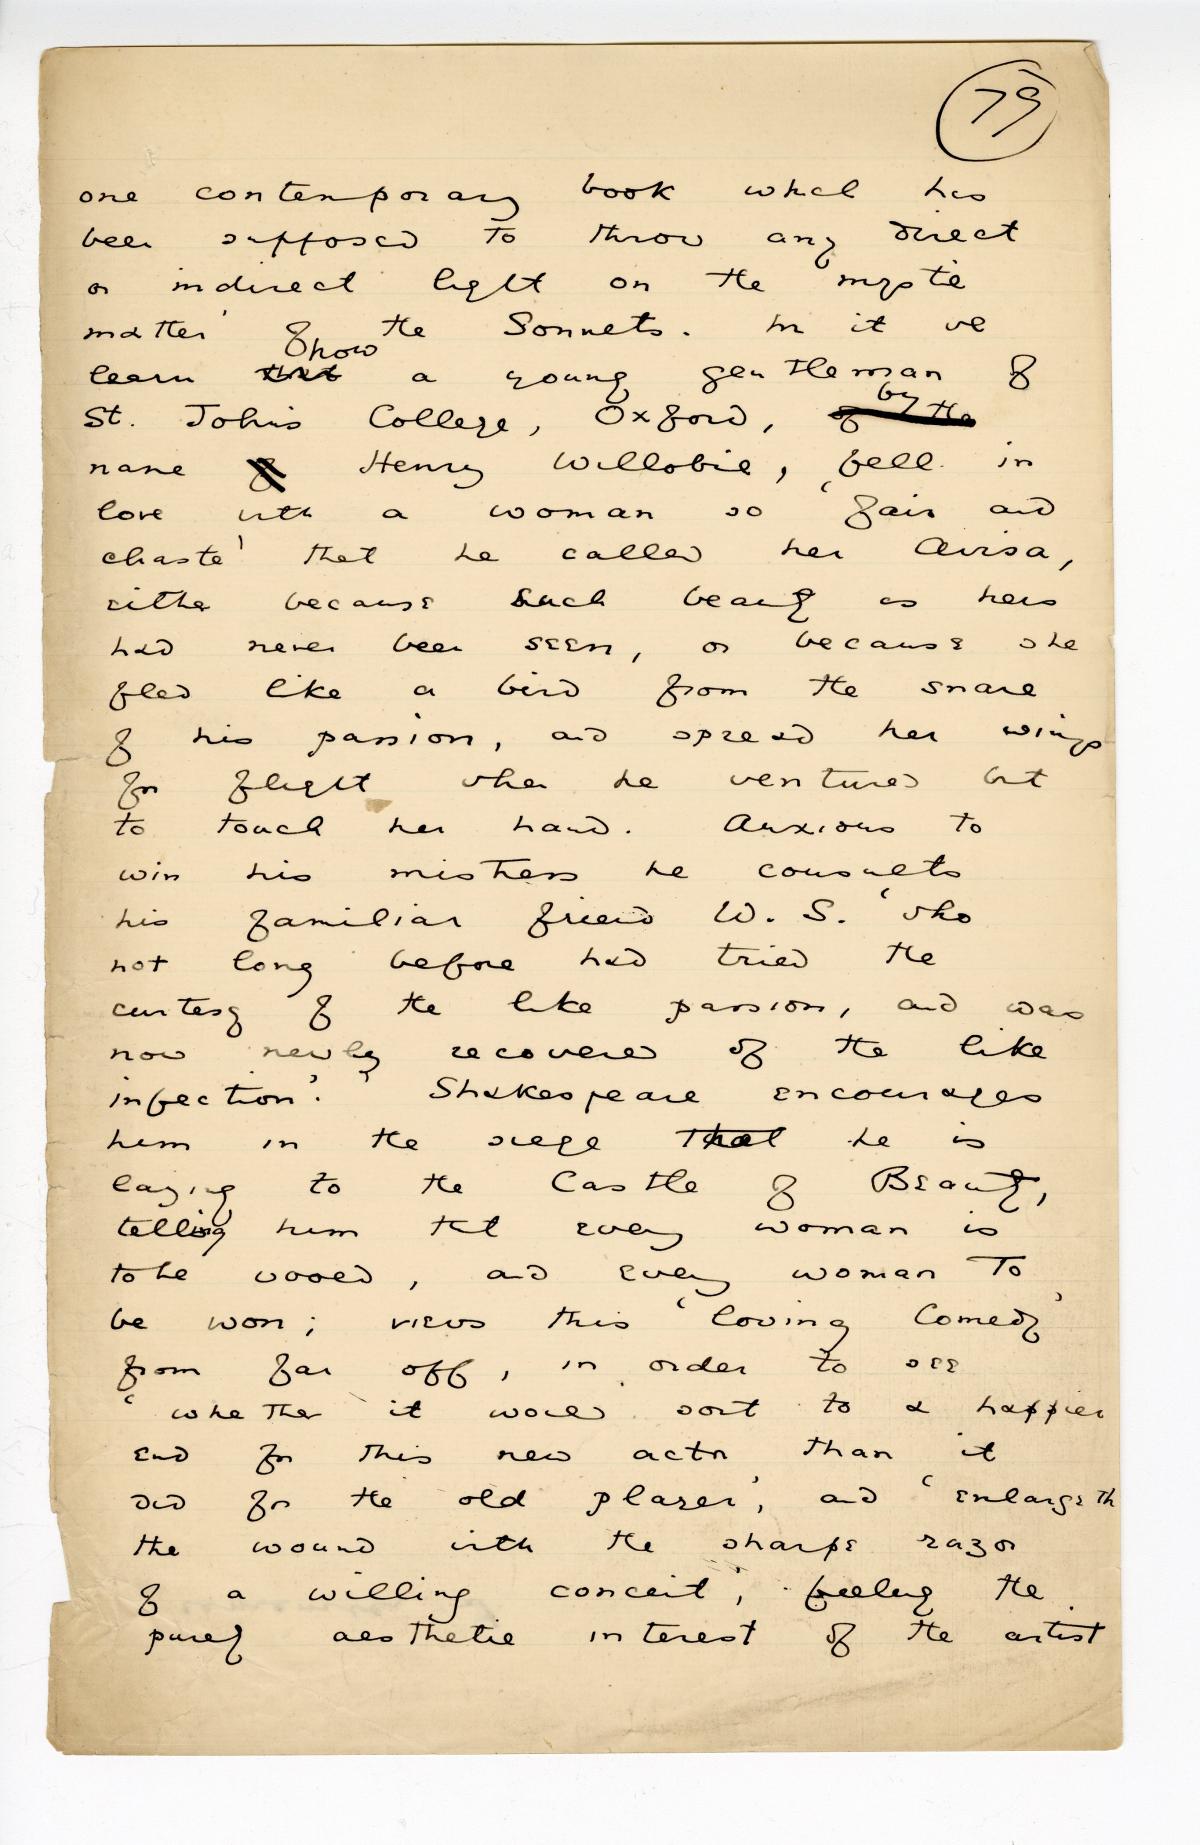 79
one contemporary book which has
been supposed to throw any direct
or indirect light on the mystic
matter of the Sonnets. In it we
how
learn that a young gentleman of
by
St. John's College, Oxford, of the
name of Henry Willobie, fell in
love with a woman so 'fair and
chaste' that he called her Avisa,
either because such beauty as hers
had never been seen, or because she
fled like a bird from the snare
of his passion, and spread her wings
for flight when he ventured but
to touch her hand. Anxious to
win his mistress he consults
his familiar friend W. S. 'who
not long before had tried the
curtesy of the like passion, and was
now newly recovered of the like
infection'. Shakespeare encourages
him in the siege that he is
laying to the Castle of Beauty,
telling him that every woman is
to be wooed, and every woman to
be won; views this 'loving Comedy'
from far off, in order to see
'whether it would sort to a happier
end for this new actor than it
did for the old player', and 'enlargeth
the wound with the sharpe razor
of a willing conceit', feeling the
purely aesthetic interest of the artist